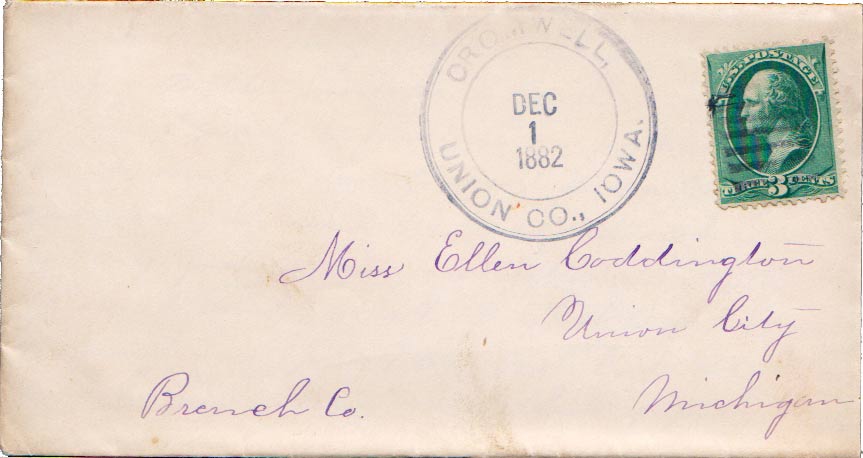 CROMWELL,
DEC
1
1882
UNION CO., IOWA.
U.S. POSTAGE
THREE 3 CENTS
Miss Ellen Coddington
Union City
Branch Co.
Michigan